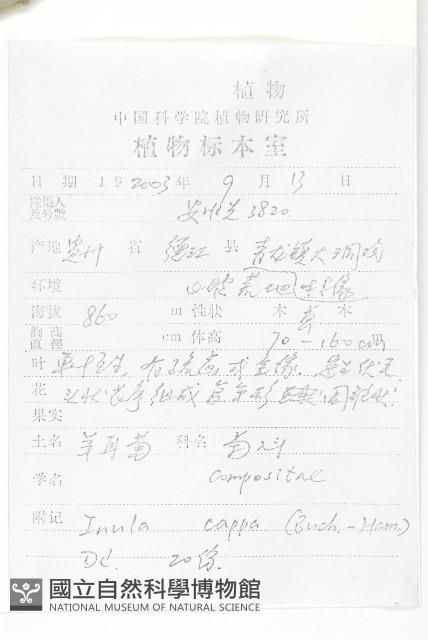 植物
中国科学院植物研究所
植物标本室
日期 19 2003 年 9 月 13 日
採集人及号数 安明先 3820
产地 贵州 省 德江 县 青龙镇大洞沟
环境 山坡荒地
海拔 860 m 性状 木 草 木
胸高直徑 cm 体高 70-160cm
叶 单叶互生,有疏齿或全缘
花 头状花序组成
果实
土名 羊耳菊 科名 菊科
学名 compositae
附记 Inula cappa (Buch.-Ham.)
DC. 20份
國立自然科學博物館
NATIONAL MUSEUM OF NATURAL SCIENCE